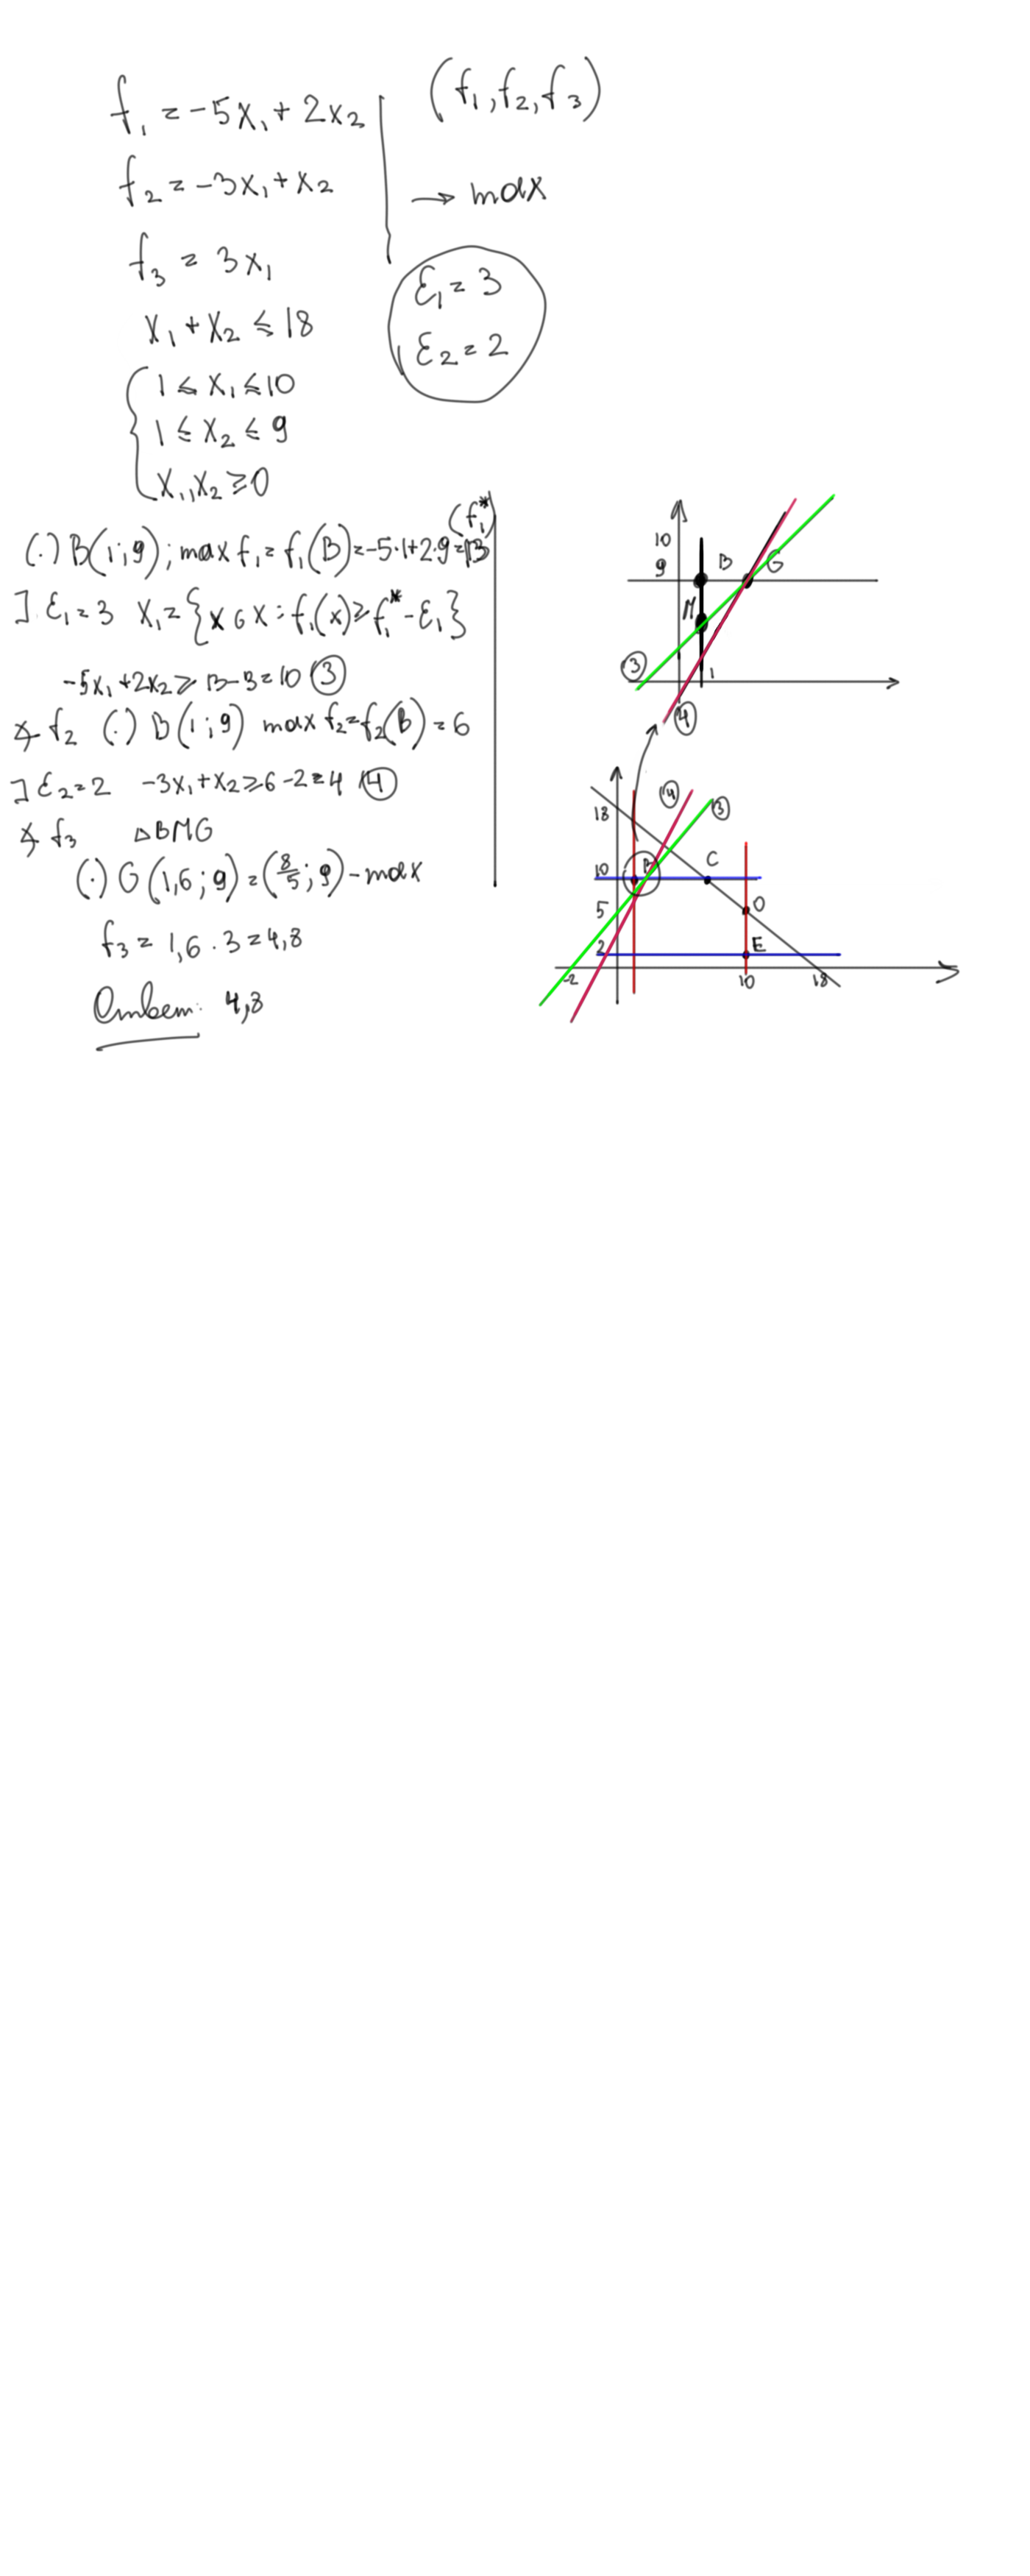 f₁ = -5x₁ + 2x₂
(f₁, f₂, f₃)
f₂ = -3x₁ + x₂
→ max
f₃ = 3x₁
ε₁ = 3
x₁ + x₂ ≤ 18
ε₂ = 2
1 ≤ x₁ ≤ 10
1 ≤ x₂ ≤ 9
x₁, x₂ ≥ 0
(f₁*)
(·) B(1; 9); max f₁ = f₁(B) = -5·1 + 2·9 = 13
] ε₁ = 3 X₁ = {x ∈ X : f₁(x) ≥ f₁* - ε₁}
-5x₁ + 2x₂ ≥ 13 - 3 = 10 ③
∢ f₂ (·) B(1; 9) max f₂ = f₂(B) = 6
] ε₂ = 2 -3x₁ + x₂ ≥ 6 - 2 = 4 ④
∢ f₃ △BMG
(·) G(1,6; 9) = (8/5; 9) - max
f₃ = 1,6 · 3 = 4,8
Ответ: 4,8
10
9
B
G
M
③
1
④
18
④
③
10
B
C
5
D
2
E
-2
10
18